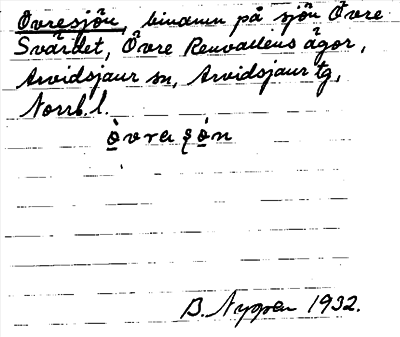 Övresjön, binamn på sjön Övre
Svärdet, Övre Renvallens ägor,
Arvidsjaur sn, Arvidsjaur tg,
Norrb. l.
ò̱vraʂó̱n
B. Nygren 1932.